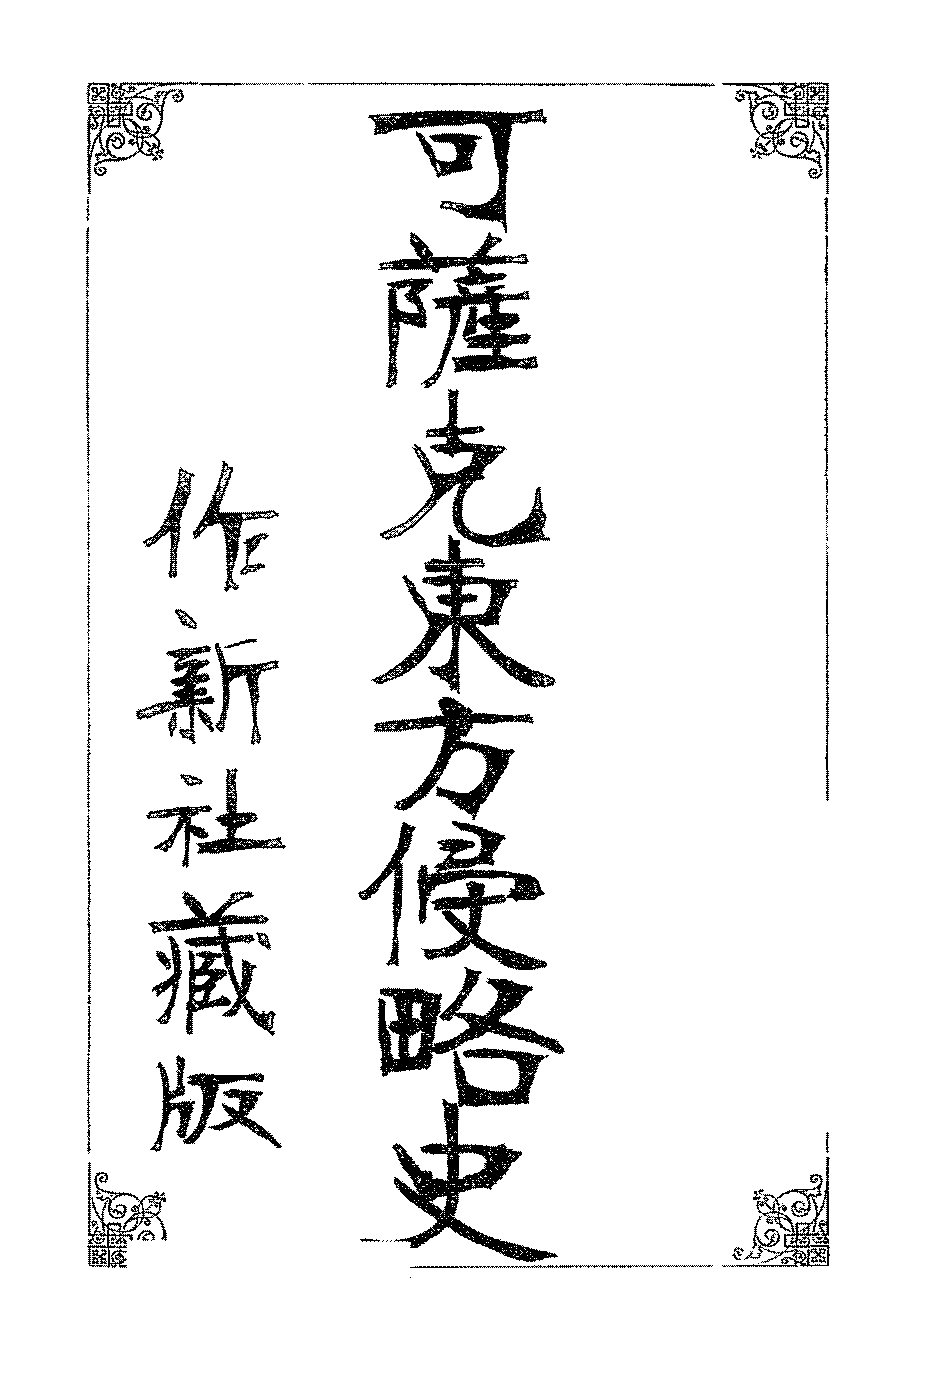 可薩克東方侵略史
作新社藏版